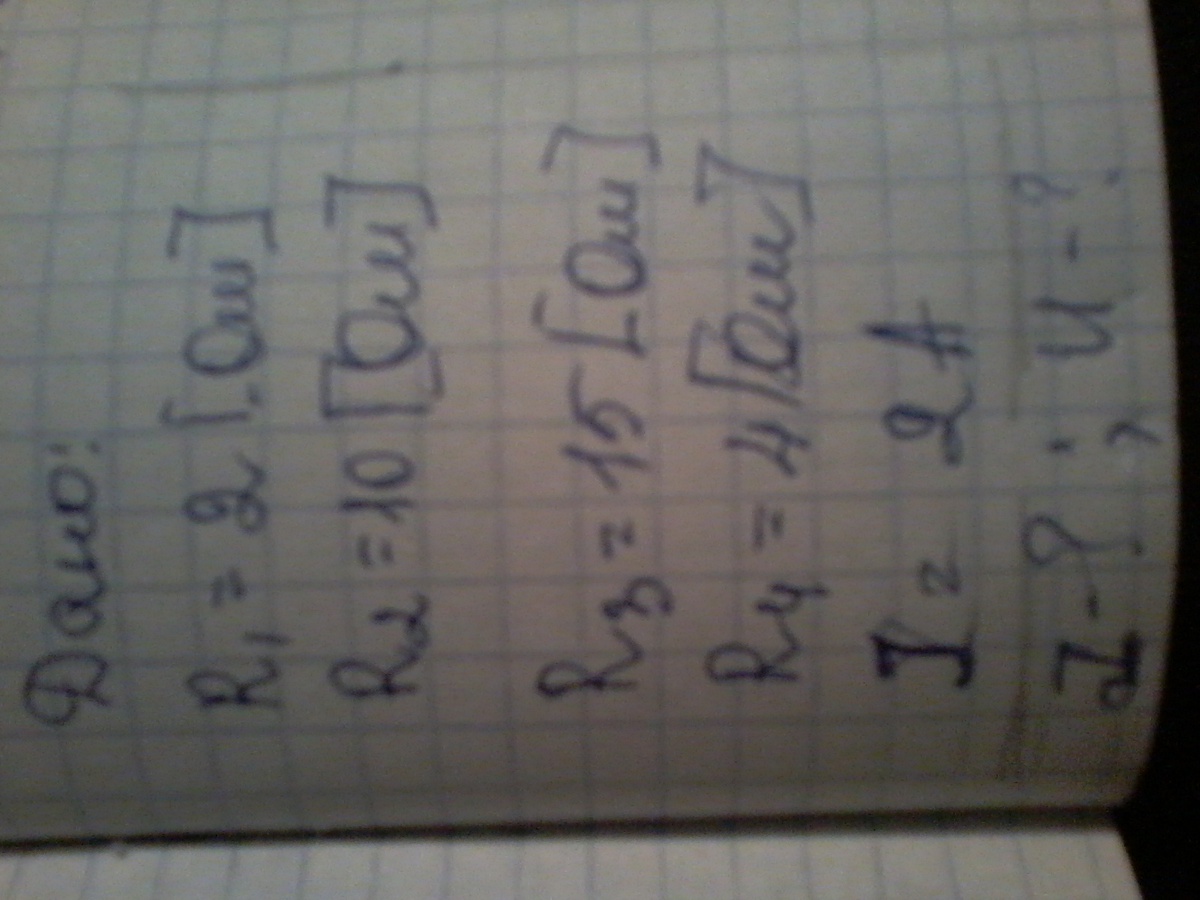 Дано:
R1 = 2 [Ом]
R2 = 10 [Ом]
R3 = 15 [Ом]
R4 = 4 [Ом]
I = 2 А
I - ? ; U - ?